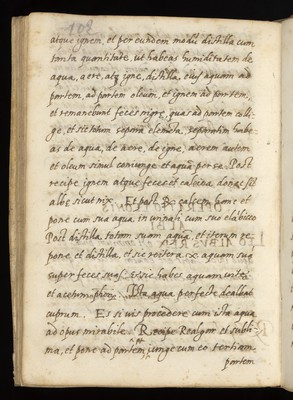 atque ignem, et per eundem modū distilla cum
tanta quantitate, ut habeas humiditatem de
aqua, aere, atq igne, distilla, eius aquam ad
partem, ad partem oleum, et ignem ad partem,
et remanebunt feces nigre, quas ad partem colli-
ge, et sic totum separa elemēta, separatim habe-
as de aqua, de aere, de igne, aerem autem
et oleum simul coniunge, et aquā per se. Post
recipe ignem atque feces et calcina, donec sīt
albe sicut nix. Et post ℞ calcem bone et
pone cum sua aqua in urinali cum suo alābicco
Post distilla totam suam aquā, et iterum re
pone, et distilla, et sic reitera aquam suā
super feces suas. Et sic habes aquam
et acetum. Ista aqua perfecte dealbat
cuprum. Et si vis procedere cum ista aqua
ad opus mirabile. Recipe Realgar et subli-
ma, et pone ad partem, iunge cum eo tertiam
partem